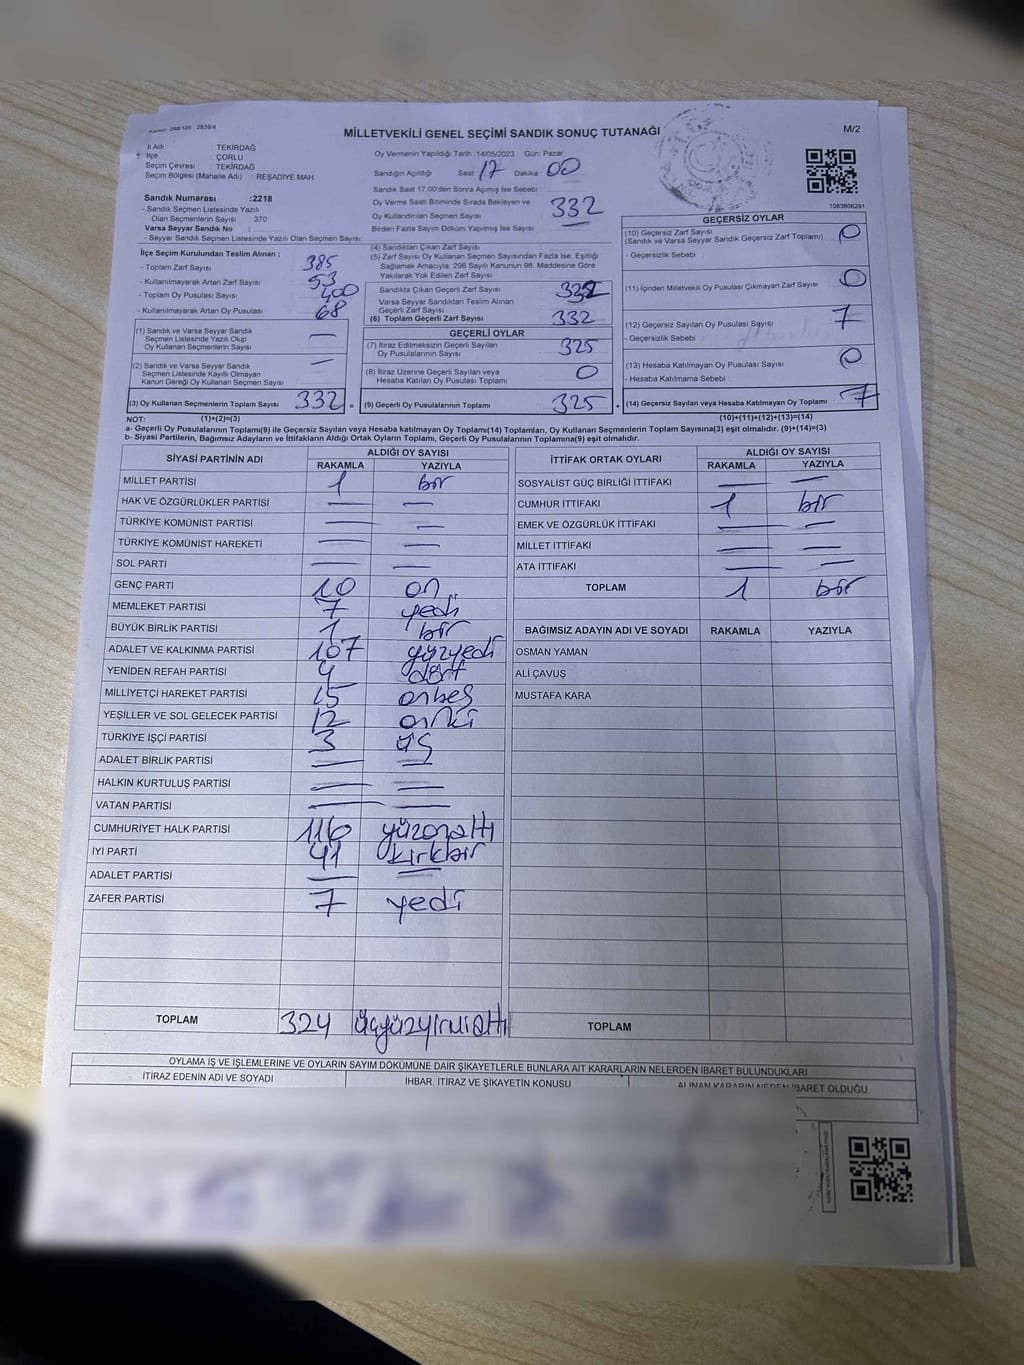 Kanun: 298/105, 2839/4
MİLLETVEKİLİ GENEL SEÇİMİ SANDIK SONUÇ TUTANAĞI
M/2
İl Adı : TEKİRDAĞ
İlçe : ÇORLU
Seçim Çevresi : TEKİRDAĞ
Seçim Bölgesi (Mahalle Adı) REŞADİYE MAH
Sandık Numarası :2218
- Sandık Seçmen Listesinde Yazılı
Olan Seçmenlerin Sayısı : 370
Varsa Seyyar Sandık No :
- Seyyar Sandık Seçmen Listesinde Yazılı Olan Seçmen Sayısı:
İlçe Seçim Kurulundan Teslim Alınan :
- Toplam Zarf Sayısı 385
- Kullanılmayarak Artan Zarf Sayısı 53
- Toplam Oy Pusulası Sayısı 400
- Kullanılmayarak Artan Oy Pusulası 68
(1) Sandık ve Varsa Seyyar Sandık
Seçmen Listesinde Yazılı Olup
Oy Kullanan Seçmenlerin Sayısı —
(2) Sandık ve Varsa Seyyar Sandık
Seçmen Listesinde Kayıtlı Olmayan
Kanun Gereği Oy Kullanan Seçmen Sayısı —
(3) Oy Kullanan Seçmenlerin Toplam Sayısı 332 =
Oy Vermenin Yapıldığı Tarih :14/05/2023 Gün: Pazar
Sandığın Açıldığı Saat 17 Dakika 00
Sandık Saat 17.00'den Sonra Açılmış İse Sebebi
Oy Verme Saati Bitiminde Sırada Bekleyen ve
Oy Kullandırılan Seçmen Sayısı 332
Birden Fazla Sayım Döküm Yapılmış İse Sayısı
(4) Sandıktan Çıkan Zarf Sayısı
(5) Zarf Sayısı Oy Kullanan Seçmen Sayısından Fazla İse, Eşitliği
Sağlamak Amacıyla, 298 Sayılı Kanunun 98. Maddesine Göre
Yakılarak Yok Edilen Zarf Sayısı
Sandıkta Çıkan Geçerli Zarf Sayısı 332
Varsa Seyyar Sandıktan Teslim Alınan
Geçerli Zarf Sayısı
(6) Toplam Geçerli Zarf Sayısı 332
GEÇERLİ OYLAR
(7) İtiraz Edilmeksizin Geçerli Sayılan
Oy Pusulalarının Sayısı 325
(8) İtiraz Üzerine Geçerli Sayılan veya
Hesaba Katılan Oy Pusulası Toplamı 0
(9) Geçerli Oy Pusulalarının Toplamı 325 +
1083606291
GEÇERSİZ OYLAR
(10) Geçersiz Zarf Sayısı 0
(Sandık ve Varsa Seyyar Sandık Geçersiz Zarf Toplamı)
- Geçersizlik Sebebi
(11) İçinden Milletvekili Oy Pusulası Çıkmayan Zarf Sayısı 0
(12) Geçersiz Sayılan Oy Pusulası Sayısı 7
- Geçersizlik Sebebi :
(13) Hesaba Katılmayan Oy Pusulası Sayısı 0
- Hesaba Katılmama Sebebi :
(14) Geçersiz Sayılan veya Hesaba Katılmayan Oy Toplamı 7
NOT: (1)+(2)=(3) (10)+(11)+(12)+(13)=(14)
a- Geçerli Oy Pusulalarının Toplamı(9) ile Geçersiz Sayılan veya Hesaba katılmayan Oy Toplamı(14) Toplamları, Oy Kullanan Seçmenlerin Toplam Sayısına(3) eşit olmalıdır. (9)+(14)=(3)
b- Siyasi Partilerin, Bağımsız Adayların ve İttifakların Aldığı Ortak Oyların Toplamı, Geçerli Oy Pusulalarının Toplamına(9) eşit olmalıdır.
SİYASİ PARTİNİN ADI ALDIĞI OY SAYISI
RAKAMLA YAZIYLA
MİLLET PARTİSİ 1 bir
HAK VE ÖZGÜRLÜKLER PARTİSİ — —
TÜRKİYE KOMÜNİST PARTİSİ — —
TÜRKİYE KOMÜNİST HAREKETİ — —
SOL PARTİ — —
GENÇ PARTİ 10 on
MEMLEKET PARTİSİ 7 yedi
BÜYÜK BİRLİK PARTİSİ 1 bir
ADALET VE KALKINMA PARTİSİ 107 yüzyedi
YENİDEN REFAH PARTİSİ 4 dört
MİLLİYETÇİ HAREKET PARTİSİ 15 onbeş
YEŞİLLER VE SOL GELECEK PARTİSİ 12 oniki
TÜRKİYE İŞÇİ PARTİSİ 3 üç
ADALET BİRLİK PARTİSİ — —
HALKIN KURTULUŞ PARTİSİ — —
VATAN PARTİSİ — —
CUMHURİYET HALK PARTİSİ 116 yüzonaltı
İYİ PARTİ 41 kırkbir
ADALET PARTİSİ — —
ZAFER PARTİSİ 7 yedi
TOPLAM 324 üçyüzyirmialtı
İTTİFAK ORTAK OYLARI ALDIĞI OY SAYISI
RAKAMLA YAZIYLA
SOSYALİST GÜÇ BİRLİĞİ İTTİFAKI — —
CUMHUR İTTİFAKI 1 bir
EMEK VE ÖZGÜRLÜK İTTİFAKI — —
MİLLET İTTİFAKI — —
ATA İTTİFAKI — —
TOPLAM 1 bir
BAĞIMSIZ ADAYIN ADI VE SOYADI RAKAMLA YAZIYLA
OSMAN YAMAN
ALİ ÇAVUŞ
MUSTAFA KARA
TOPLAM
OYLAMA İŞ VE İŞLEMLERİNE VE OYLARIN SAYIM DÖKÜMÜNE DAİR ŞİKAYETLERLE BUNLARA AİT KARARLARIN NELERDEN İBARET BULUNDUKLARI
İTİRAZ EDENİN ADI VE SOYADI İHBAR, İTİRAZ VE ŞİKAYETİN KONUSU ALINAN KARARIN NEDEN İBARET OLDUĞU